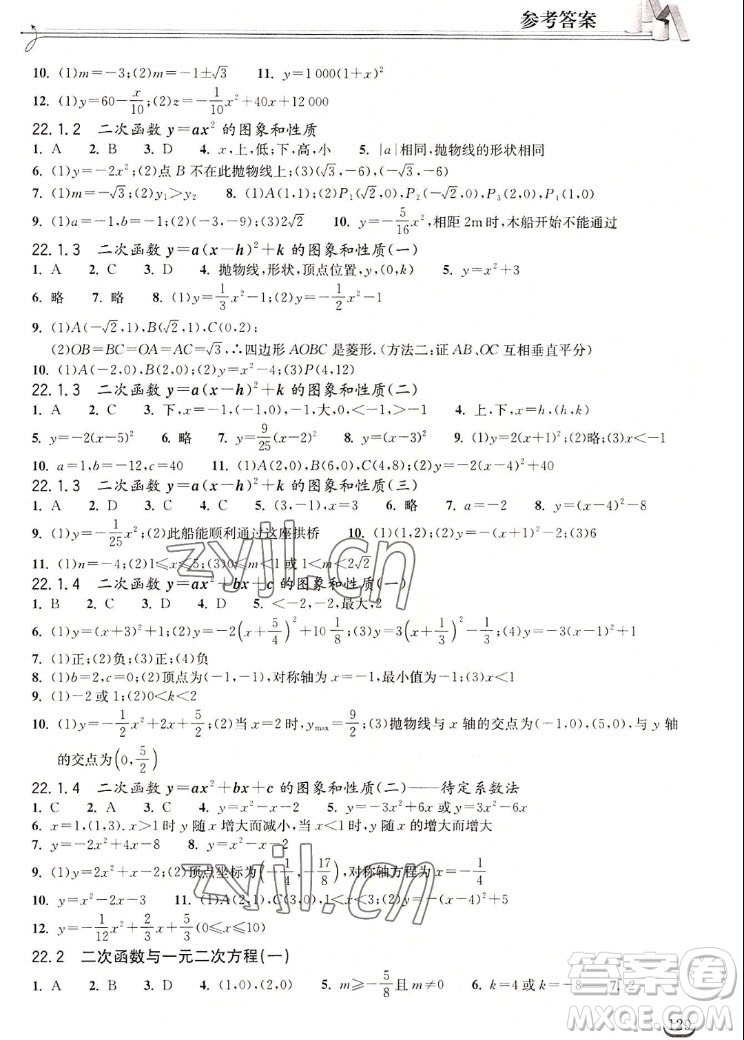 参考答案
10. (1)m=-3;(2)m=-1±√3 11. y=1 000(1+x)²
12. (1)y=60-x/10;(2)z=-1/10x²+40x+12 000
22.1.2 二次函数 y=ax² 的图象和性质
1. A 2. B 3. D 4. 上,低;下,高,小 5. |a|相同,抛物线的形状相同
6. (1)y=-2x²;(2)点 B 不在此抛物线上;(3)(√3,-6),(-√3,-6)
7. (1)m=-√3;(2)y₁>y₂ 8. (1)A(1,1);(2)P₁(√2,0),P₂(-√2,0),P₃(2,0),P₄(1,0)
9. (1)a=-1,b=-1;(2)(-3,-9);(3)2√2 10. y=-5/16x²,相距2m时,木船开始不能通过
22.1.3 二次函数 y=a(x-h)²+k 的图象和性质(一)
1. A 2. B 3. D 4. 抛物线,形状,顶点位置,y,(0,k) 5. y=x²+3
6. 略 7. 略 8. (1)y=1/3x²-1;(2)y=-1/2x²-1
9. (1)A(-√2,1),B(√2,1),C(0,2);
(2)OB=BC=OA=AC=√3,∴四边形 AOBC 是菱形.(方法二:证 AB、OC 互相垂直平分)
10. (1)A(-2,0),B(2,0);(2)y=x²-4;(3)P(4,12)
22.1.3 二次函数 y=a(x-h)²+k 的图象和性质(二)
1. A 2. C 3. 下,x=-1,(-1,0),-1,大,0,<-1,>-1 4. 上,下,x=h,(h,0)
5. y=-2(x-5)² 6. 略 7. y=9/25(x-2)² 8. y=(x-3)² 9. (1)y=2(x+1)²;(2)略;(3)5
10. a=1,b=-12,c=40 11. (1)A(2,0),B(0,4);(2)C(4,4);(3)P(6,16)
22.1.3 二次函数 y=a(x-h)²+k 的图象和性质(三)
1. A 2. D 3. C 4. C 5. (3,-1),x=3 6. 略 7. 略 8. y=2(x-4)²-8
9. (1)y=-1/25x²;(2)此船能顺利通过这座拱桥 10. (1)(1,2);(2)y=-(x+1)²-2;(3)6
11. (1)n=-1;(2)1≤x≤5;(3)0≤m≤1或1<m≤2
22.1.4 二次函数 y=ax²+bx+c 的图象和性质(一)
1. B 2. D 3. D 4. D 5. <-2,-2,最大,2
6. (1)y=(x+3)²+1;(2)y=-2(x+5/4)²+10 1/8;(3)y=3(x+1/3)²-1/3;(4)y=-(x-2)²
7. (1)正;(2)负;(3)正;(4)负
8. (1)b=2,c=0;(2)顶点为(-1,-1),对称轴为x=-1,最小值为-1;(3)x<1
9. (1)-2 或1;(2)0<k<2
10. (1)y=-1/2x²+2x+5/2;(2)当 x=2时,yₘₐₓ=9/2;(3)抛物线与 x 轴的交点为(-1,0),(5,0),与 y 轴
的交点为(0,5/2)
22.1.4 二次函数 y=ax²+bx+c 的图象和性质(二)——待定系数法
1. C 2. A 3. C 4. y=x²-x-2 5. y=-3x²+6x+2
6. x=1,(1,3). x>1时 y 随 x 增大而减小,当 x<1时 y 随 x 的增大而增大
7. y=-2x²+4 8. y=x²-4x+3
9. (1)y=2x²+x-2;(2)顶点坐标为(-1/4,-17/8),对称轴方程为x=-1/4
10. y=-x²+2x+2 11. (1)(2,1),2;(2)y=-x²+4x-3
12. y=-1/12x²+2/3x+5/3(0≤x≤10)
22.2 二次函数与一元二次方程(一)
1. D 2. A 3. D 4. (1,0),(2,0) 5. m≥-5/8且 m≠0 6. k=4或 k=-8 7. -2
129
zyjl.cn
zyjl.cn
答案圈
MXQE.COM